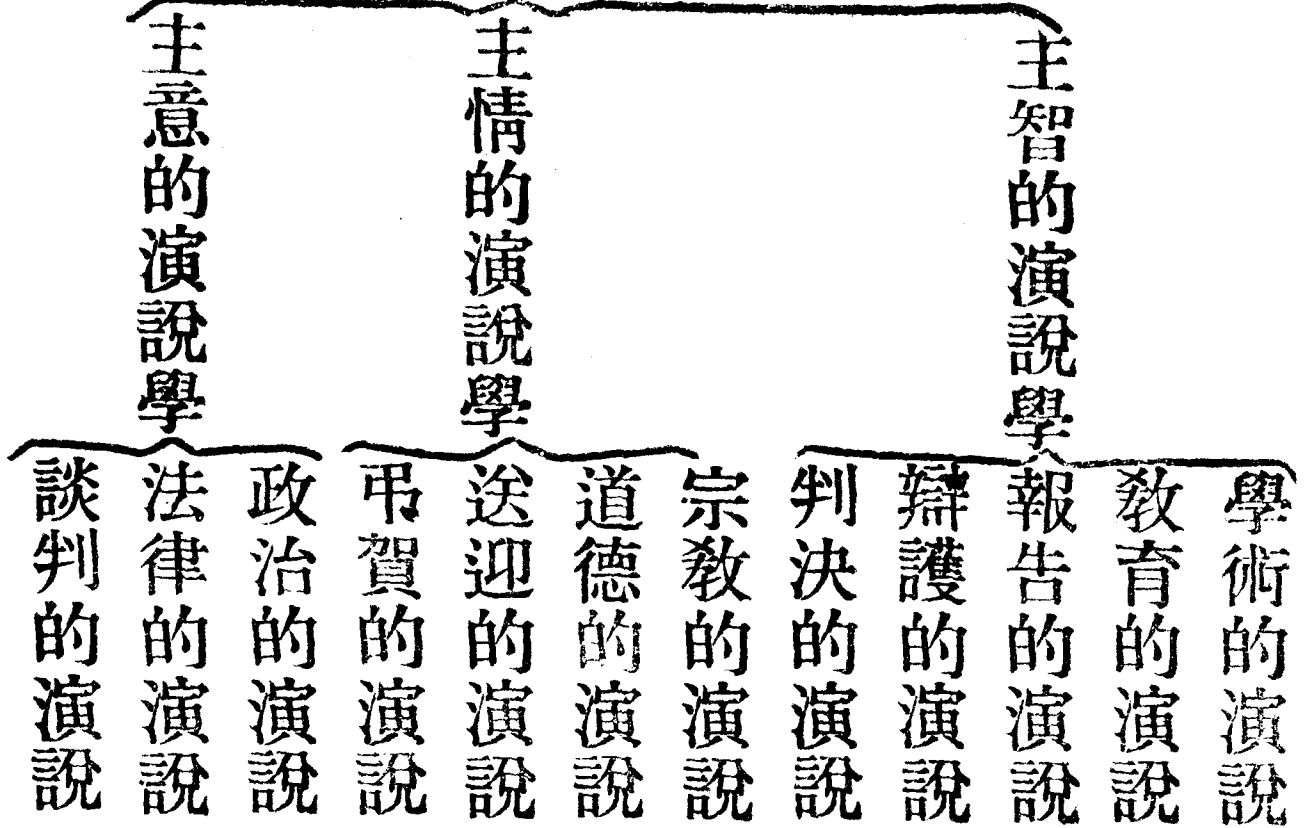 主智的演說學
學術的演說
教育的演說
報告的演說
辯護的演說
判決的演說
主情的演說學
宗教的演說
道德的演說
送迎的演說
弔賀的演說
主意的演說學
政治的演說
法律的演說
談判的演說